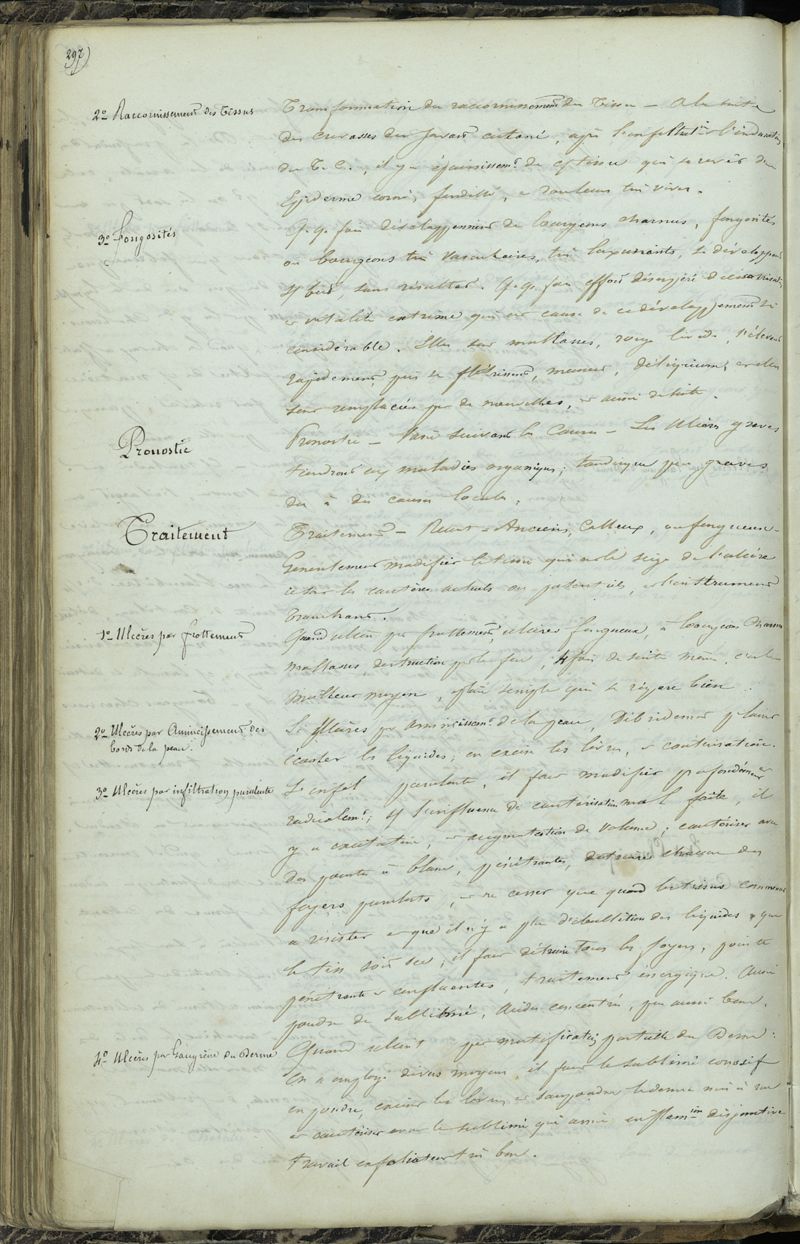 297
2º Raccornissement des Tissus
Transformation du raccornissement du Tissu — A la suite
des crevasses du Javart cutané, après l'induration
du T. C., il y a épaississemt de ce tissu qui se revêt d'un
Epiderme corné, fendillé, et douleurs très vives.
3º Fongosités
Q.q. fois développement de bourgeons charnus, fongosités
ou bourgeons très vasculaires, très luxuriants, se développent
sans résultat. Q.q. fois effort de cicatrisation
et vitalité extrême qui est cause de ce développement si
considérable. Elles sont mollasses, rouge livide, s'élèvent
rapidement, puis se flétrissent, meurent, et elles
sont remplacées par de nouvelles, et ainsi de suite.
Pronostic
Pronostic — Varie suivant les Causes — Les Ulcères graves
tiendront aux maladies organiques; tandis que peu graves
du à des causes locales.
Traitement
Traitement — Récent et Anciens, Calleux, ou fongueux.
Généralement modifier le tissu qui est le siège de l'ulcère
les cautères actuels ou potentiels, et l'instrument
tranchant.
1º Ulcères par frottement
Quand ulcère par frottement, ulcère fongueux, à bourgeons charnus
mollasses, destruction par le feu, 4 fois de suite même, c'est le
meilleur moyen, plaie simple qui se répare bien.
2º Ulcères par Amincissement des
bords de la peau.
Si Ulcères par Amincissemt de la peau, Débridement pour
écouler les liquides, en exciser les lèvres, et cautérisation.
3º Ulcères par infiltration purulente
Si infil purulente, il faut modifier profondément
radicalemt; sous l'influence de cautérisation mal faite, il
y a excitation, et augmentation de volume; cautériser avec
des pointes à blanc, pénétrantes, détruire chacun des
foyers purulents, et ne cesser que quand les tissus commencent
à résister et que il n'y a plus d'ébullition des liquides et que
le tiss. soit sec, il faut détruire tous les foyers, pointes
pénétrantes et confluentes, traitement énergique. Aussi
poudre de sublimé, Acides concentrés, pas aussi bons.
4º Ulcères par Gangrène du derme
Quand ulcère par mortification partielle du Derme:
On a employé divers moyens, il faut le sublimé corrosif
en poudre, exciser les lèvres, et saupoudrer le derme mis à nu
et cautériser avec le sublimé qui amène inflamion disjonctive
travail exfoliateur très bon.